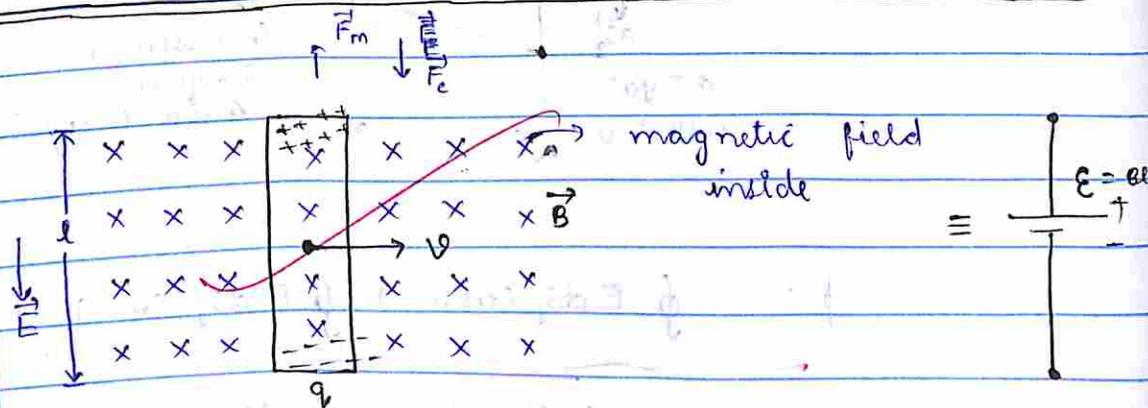 F⃗m
F⃗e
+ + + +
+ + + +
× × × × × × × → magnetic field
inside
× × × × × × × B⃗
l
≡
ε = Bl
+
-
v
E⃗
× × × × × × ×
× × × × × × ×
q